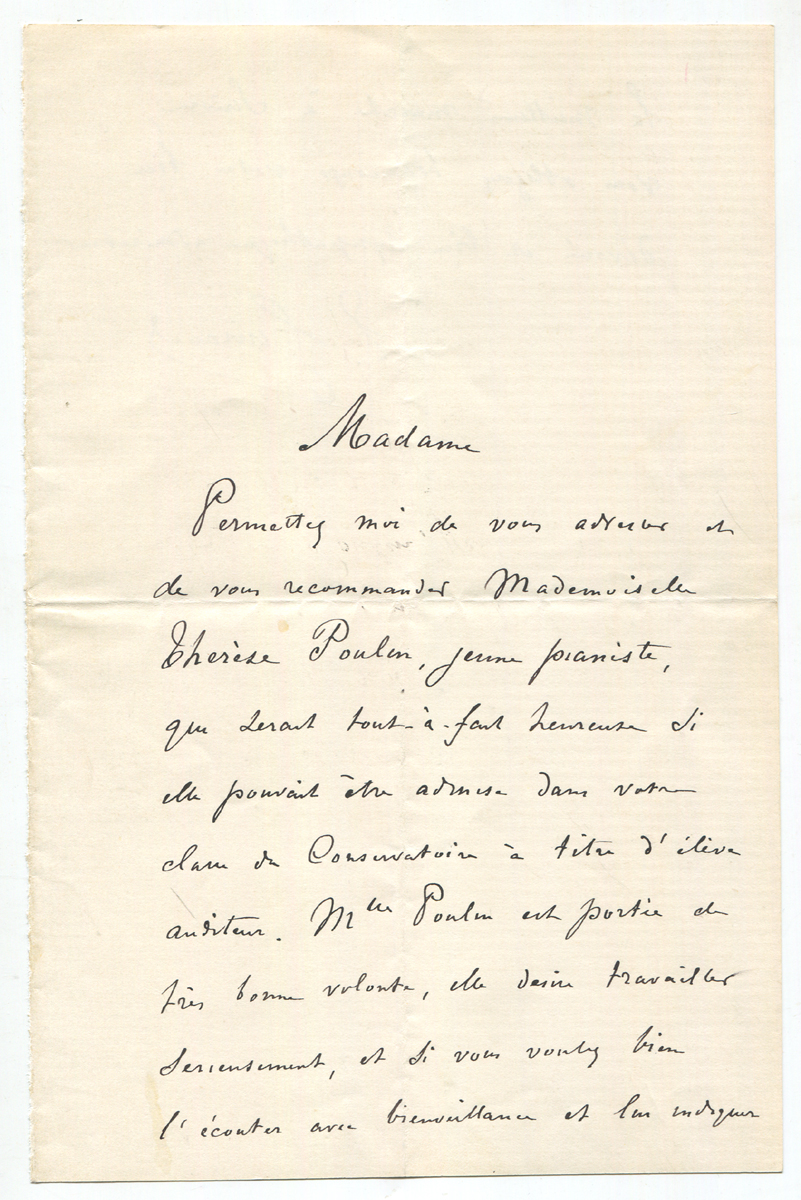 Madame
Permettez moi de vous adresser et
de vous recommander Mademoiselle
Thérèse Poulin, jeune pianiste,
qui serait tout-à-fait heureuse si
elle pouvait être admise dans votre
classe du Conservatoire à titre d'élève
auditeur. Mlle Poulin est portée de
très bonne volonté, elle désire travailler
sérieusement, et si vous voulez bien
l'écouter avec bienveillance et lui indiquer